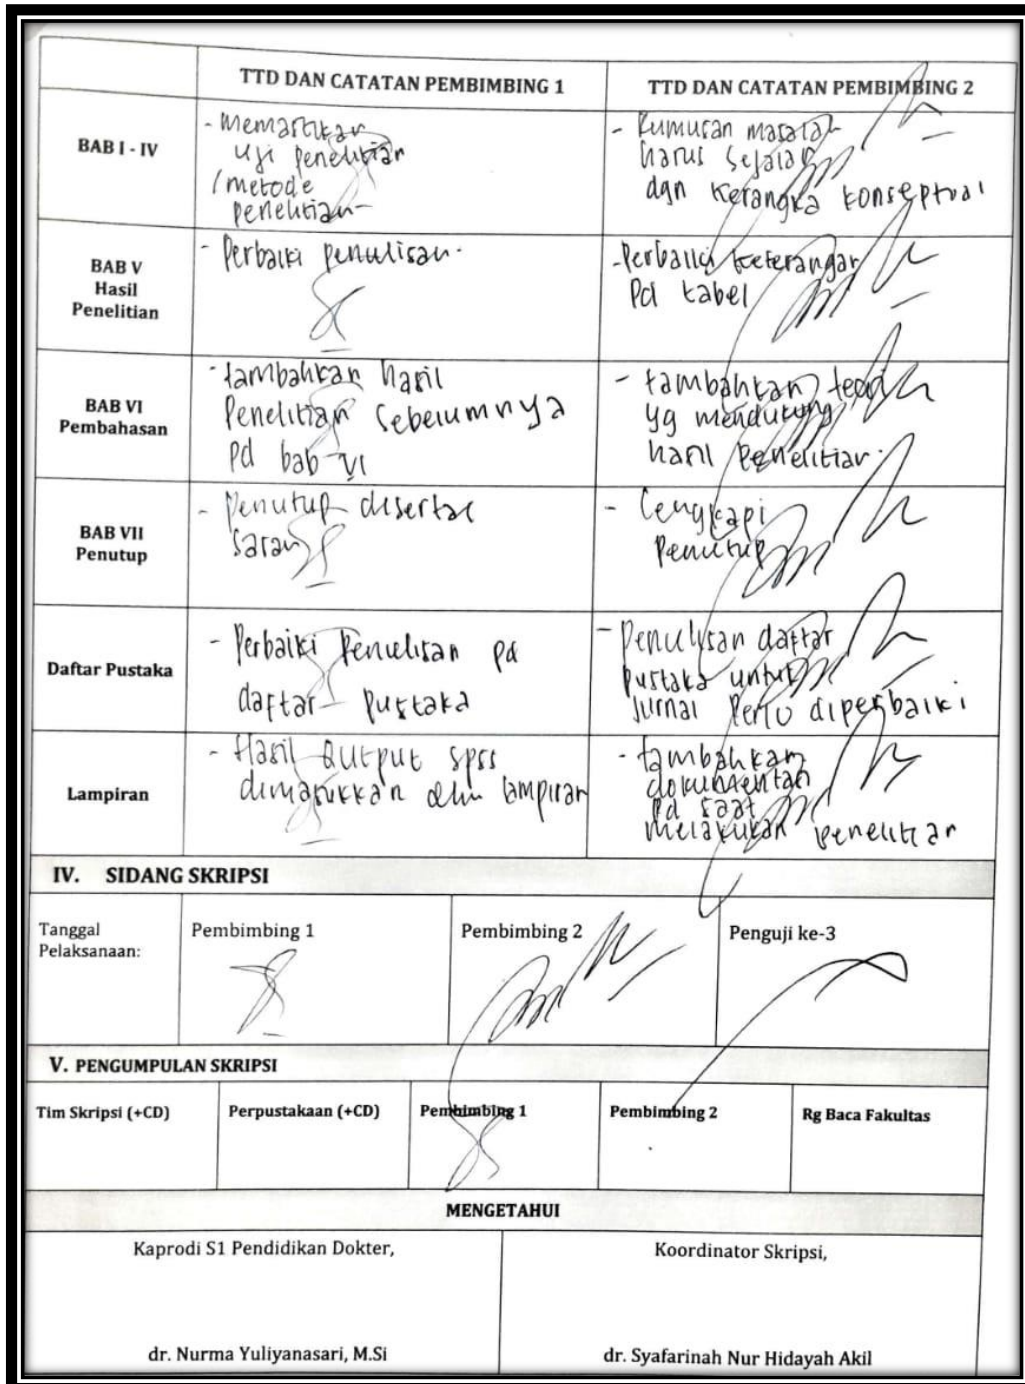 TTD DAN CATATAN PEMBIMBING 1
TTD DAN CATATAN PEMBIMBING 2
BAB I - IV
- Memastikan
uji penelitian
/metode
penelitian
- Rumusan masalah
harus sejalan
dgn kerangka konseptual
BAB V
Hasil
Penelitian
- Perbaiki penulisan.
- Perbaiki keterangan
Pd tabel
BAB VI
Pembahasan
- tambahkan hasil
Penelitian sebelumnya
Pd bab VI
- tambahkan teori
yg mendukung
hasil Penelitian.
BAB VII
Penutup
- Penutup disertai
saran
- Lengkapi
Penutup
Daftar Pustaka
- Perbaiki Penulisan pd
daftar Pustaka
- Penulisan daftar
pustaka untuk
Jurnal Perlu diperbaiki
Lampiran
- Hasil Output spss
dimasukkan dlm lampiran
- tambahkan
dokumentasi
Pd saat
melakukan penelitian
IV. SIDANG SKRIPSI
Tanggal
Pelaksanaan:
Pembimbing 1
Pembimbing 2
Penguji ke-3
V. PENGUMPULAN SKRIPSI
Tim Skripsi (+CD)
Perpustakaan (+CD)
Pembimbing 1
Pembimbing 2
Rg Baca Fakultas
MENGETAHUI
Kaprodi S1 Pendidikan Dokter,
Koordinator Skripsi,
dr. Nurma Yuliyanasari, M.Si
dr. Syafarinah Nur Hidayah Akil